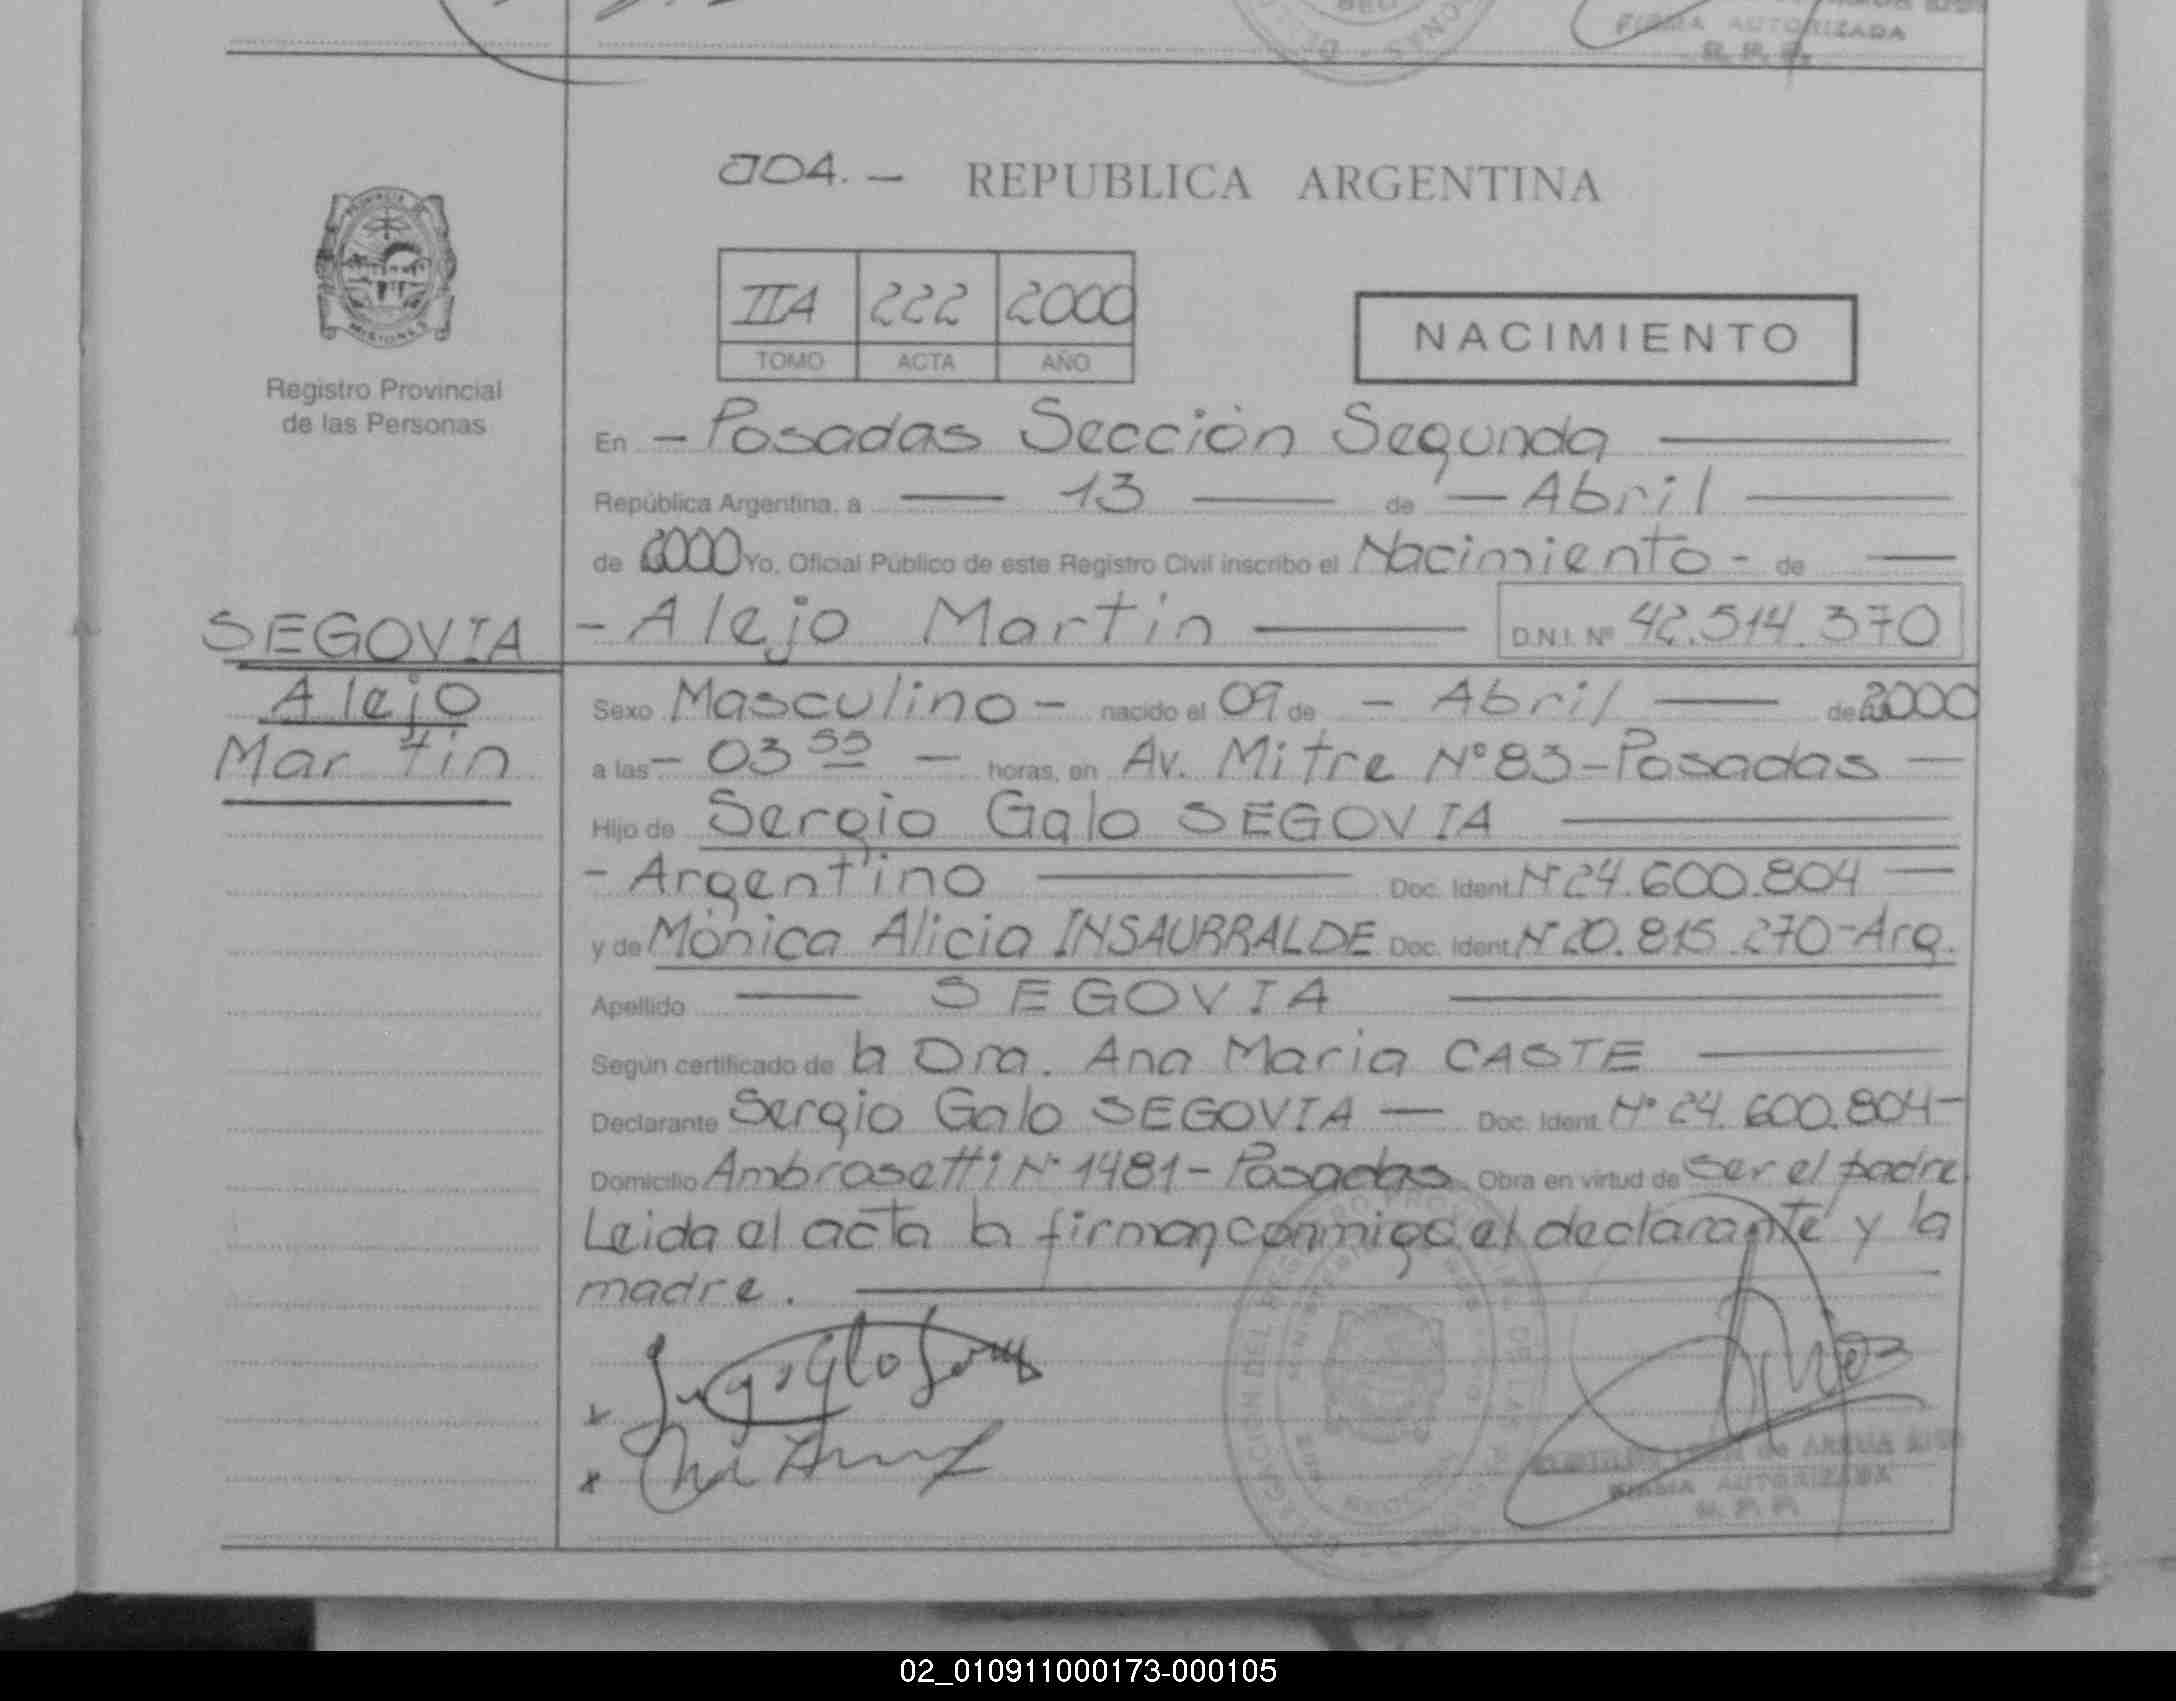 FIRMA AUTORIZADA
R. P. P.
104.- REPUBLICA ARGENTINA
PROVINCIA DE
MISIONES
IIA 222 2000
TOMO ACTA AÑO
NACIMIENTO
Registro Provincial
de las Personas
En - Posadas Sección Segunda
República Argentina, a 13 de - Abril
de 2000 Yo, Oficial Público de este Registro Civil inscribo el Nacimiento - de
- Alejo Martin D.N.I. Nº 42.514.370
SEGOVIA
Alejo
Martin
Sexo Masculino - nacido el 09 de - Abril de 2000
a las - 03 55 - horas, en Av. Mitre Nº 83 - Posadas
Hijo de Sergio Galo SEGOVIA
- Argentino Doc. Ident. Nº 24.600.804
y de Mónica Alicia INSAURRALDE Doc. Ident. Nº 20.815.270 - Arg.
Apellido SEGOVIA
Según certificado de la Dra. Ana Maria CASTE
Declarante Sergio Galo SEGOVIA - Doc. Ident. Nº 24.600.804 -
Domicilio Ambrosetti Nº 1481 - Posadas Obra en virtud de ser el padre
Leida el acta la firman conmigo el declarante y la
madre.
FIRMA AUTORIZADA
R. P. P.
02_010911000173-000105